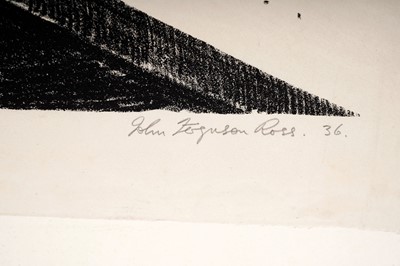 John Ferguson Ross. 36.